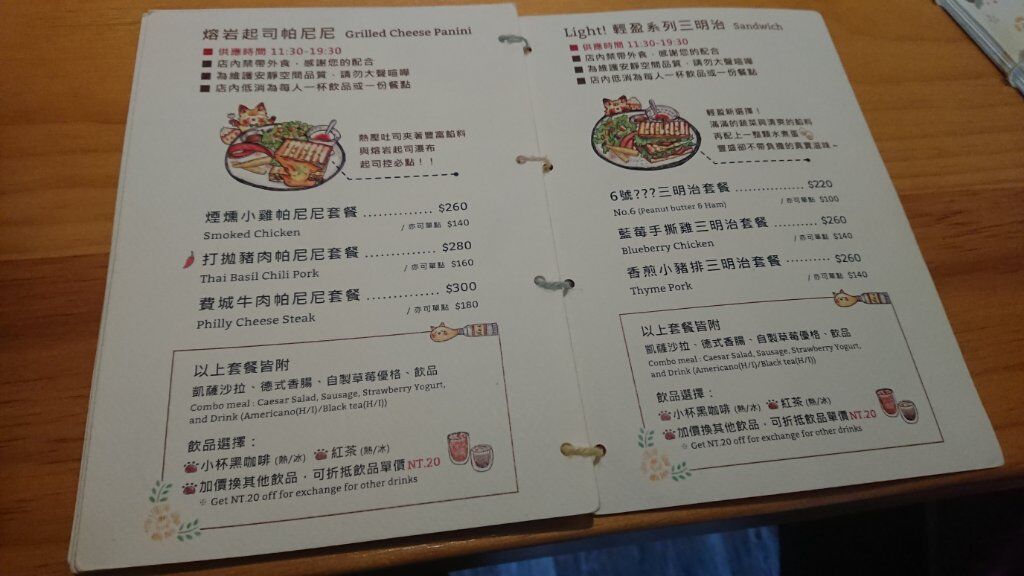 熔岩起司帕尼尼 Grilled Cheese Panini
■ 供應時間 11:30-19:30
■ 店內禁帶外食，感謝您的配合
■ 為維護安靜空間品質，請勿大聲喧嘩
■ 店內低消為每人一杯飲品或一份餐點
熱壓吐司夾著豐富餡料
與熔岩起司瀑布
起司控必點！！
煙燻小雞帕尼尼套餐 ............. $260
Smoked Chicken / 亦可單點 $140
打拋豬肉帕尼尼套餐 ............. $280
Thai Basil Chili Pork / 亦可單點 $160
費城牛肉帕尼尼套餐 ............. $300
Philly Cheese Steak / 亦可單點 $180
以上套餐皆附
凱薩沙拉、德式香腸、自製草莓優格、飲品
Combo meal : Caesar Salad, Sausage, Strawberry Yogurt,
and Drink (Americano(H/I)/Black tea(H/I))
飲品選擇：
小杯黑咖啡 (熱/冰) 紅茶 (熱/冰)
加價換其他飲品，可折抵飲品單價 NT.20
※ Get NT.20 off for exchange for other drinks
Light! 輕盈系列三明治 Sandwich
■ 供應時間 11:30-19:30
■ 店內禁帶外食，感謝您的配合
■ 為維護安靜空間品質，請勿大聲喧嘩
■ 店內低消為每人一杯飲品或一份餐點
輕盈新選擇！
滿滿的蔬菜與清爽的餡料
再配上一顆顆水煮蛋
豐盛卻不帶負擔的真實滋味~
6號???三明治套餐 .................. $220
No.6 (Peanut butter & Ham) / 亦可單點 $100
藍莓手撕雞三明治套餐 ............. $260
Blueberry Chicken / 亦可單點 $140
香煎小豬排三明治套餐 ............. $260
Thyme Pork / 亦可單點 $140
以上套餐皆附
凱薩沙拉、德式香腸、自製草莓優格、飲品
Combo meal : Caesar Salad, Sausage, Strawberry Yogurt,
and Drink (Americano(H/I)/Black tea(H/I))
飲品選擇：
小杯黑咖啡 (熱/冰) 紅茶 (熱/冰)
加價換其他飲品，可折抵飲品單價 NT.20
※ Get NT.20 off for exchange for other drinks